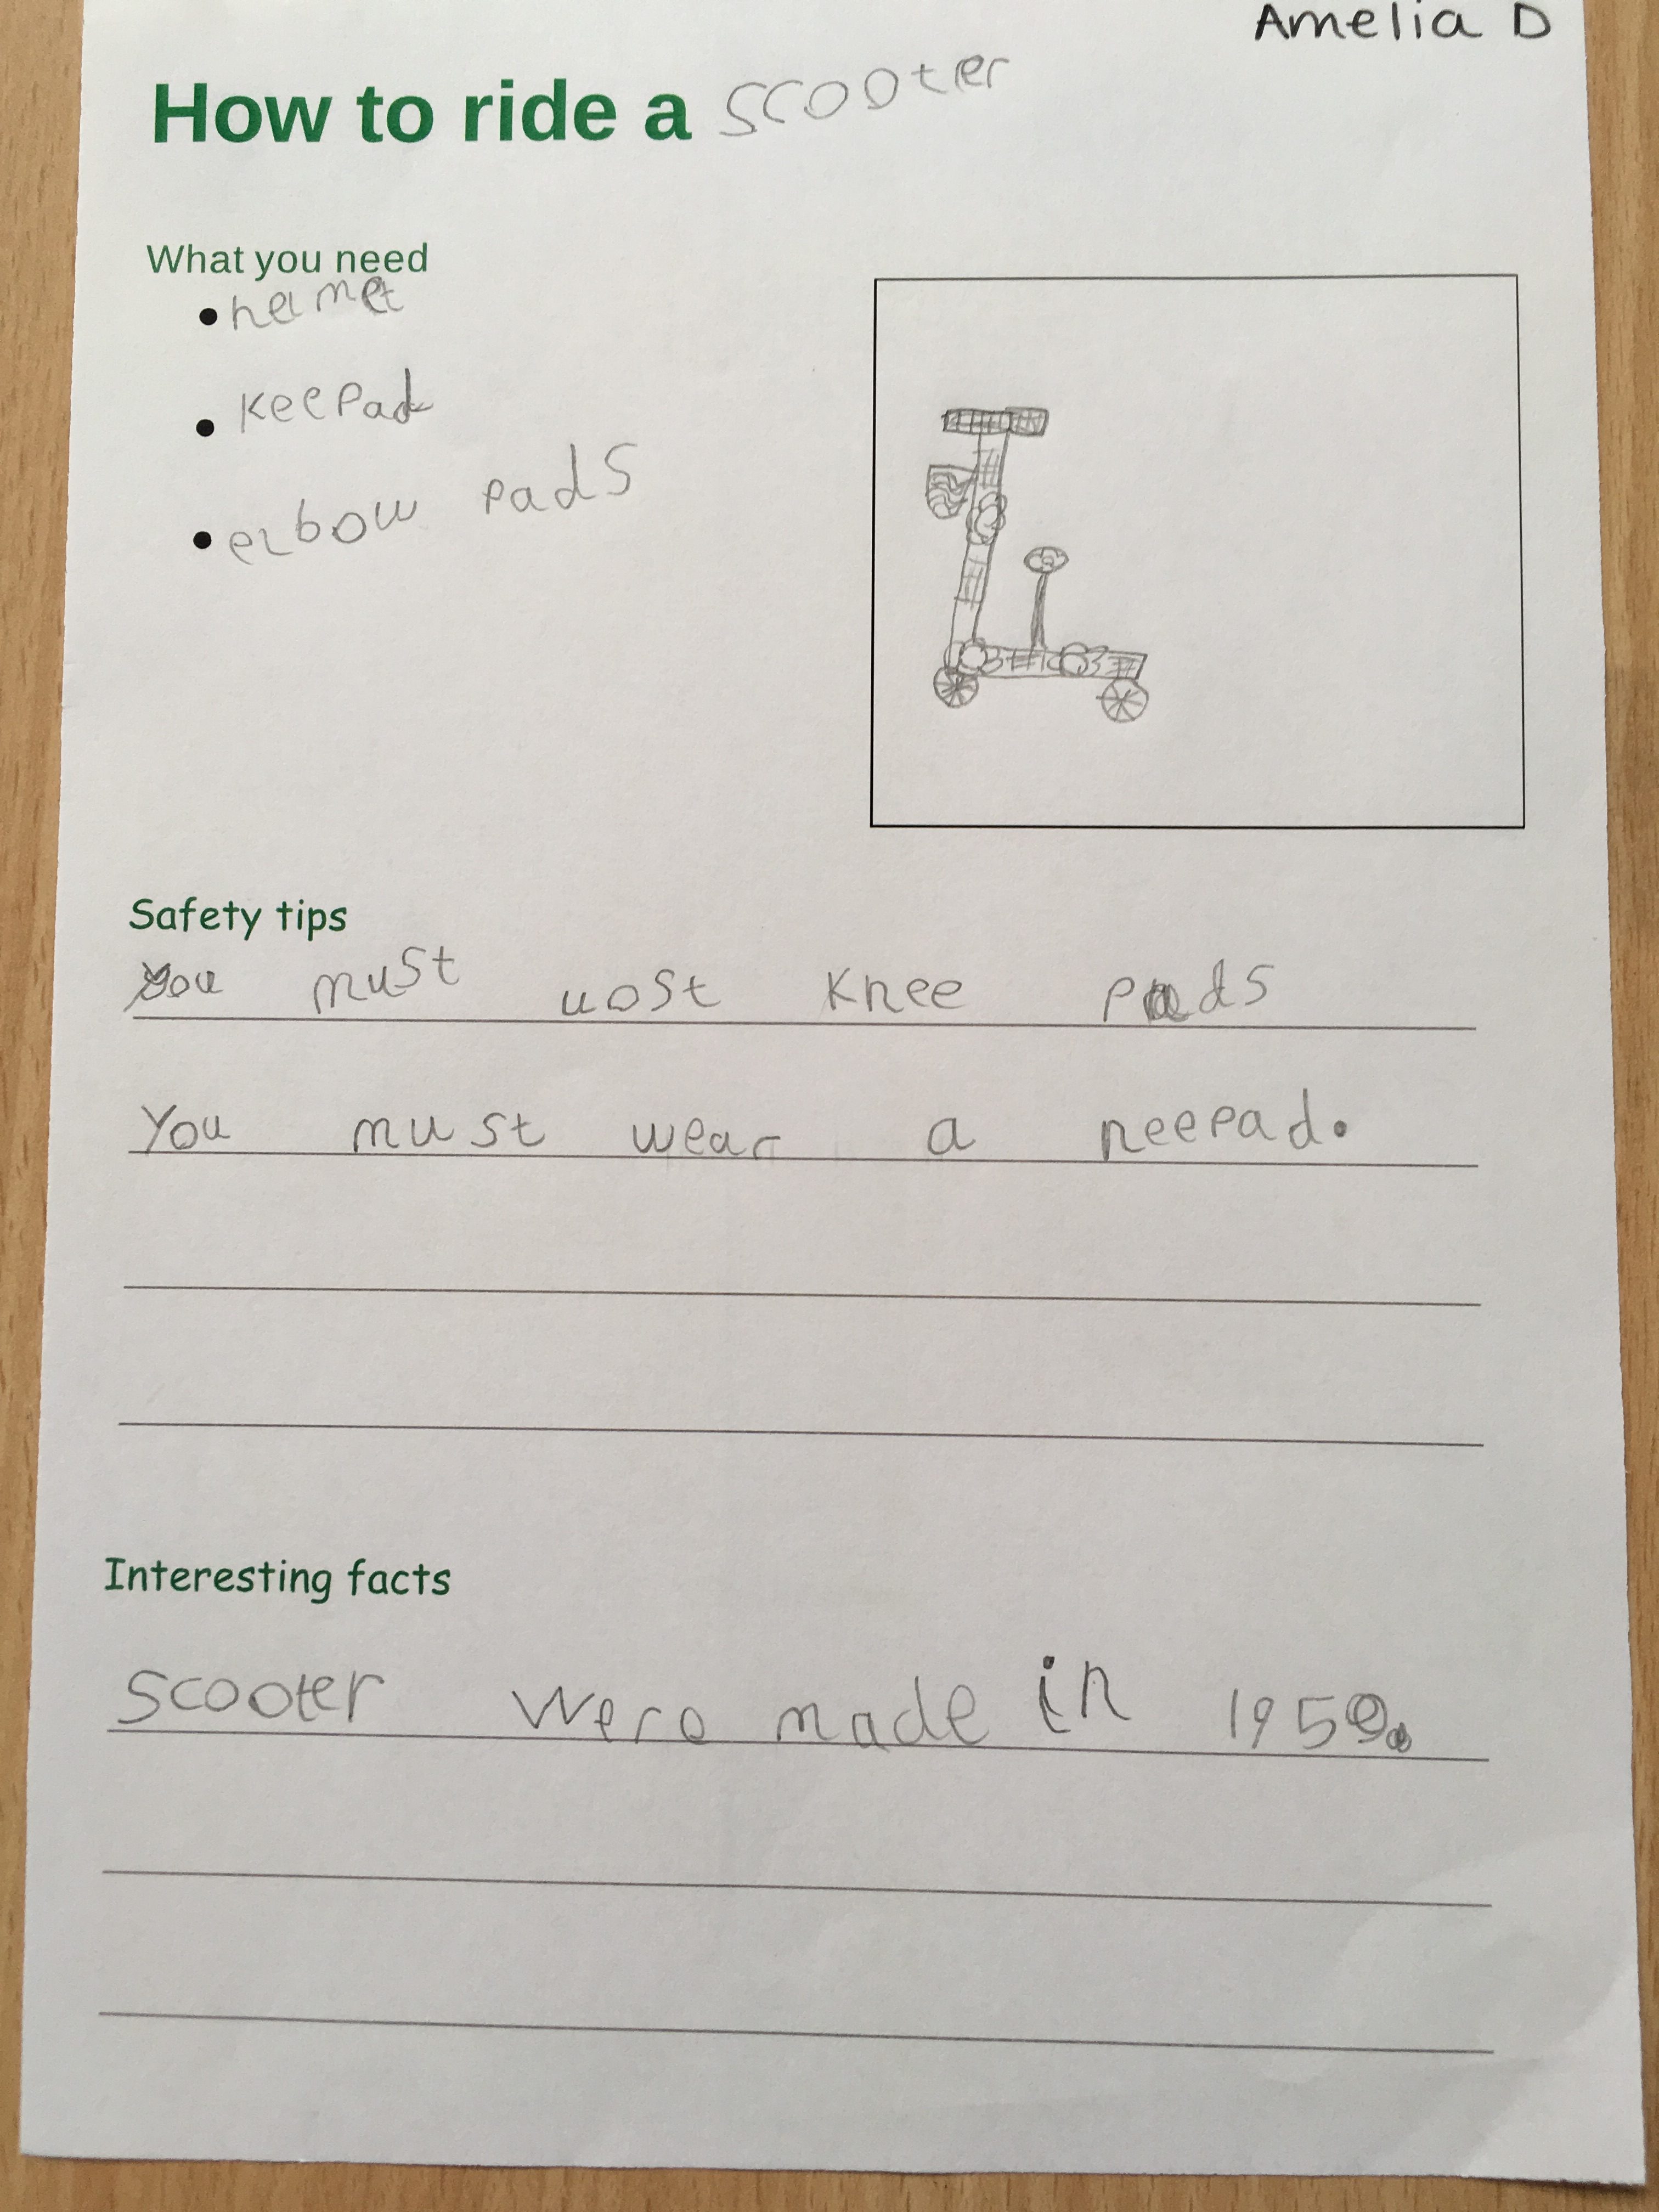 Amelia D
How to ride a scooter
What you need
helmet
Keepad
elbow pads
Safety tips
You must uost Knee pads
You must wear a neepad.
Interesting facts
Scooter were made in 1950.